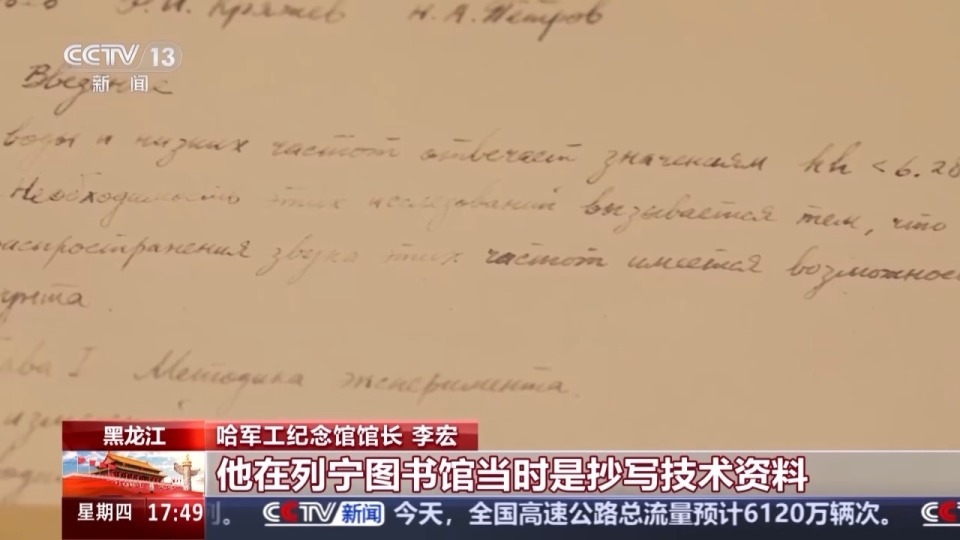 Р.И. Кряжев Н.А. Петров
CCTV 13
新闻
Введение
воды и низших частот отвечает значениям kh < 6.28
Необходимость этих исследований вызывается тем, что
распространения звука этих частот имеется возможнос
унта.
ава I Методика эксперимента.
黑龙江
哈军工纪念馆馆长 李宏
他在列宁图书馆当时是抄写技术资料
星期四 17:49
CCTV 新闻 今天，全国高速公路总流量预计6120万辆次。